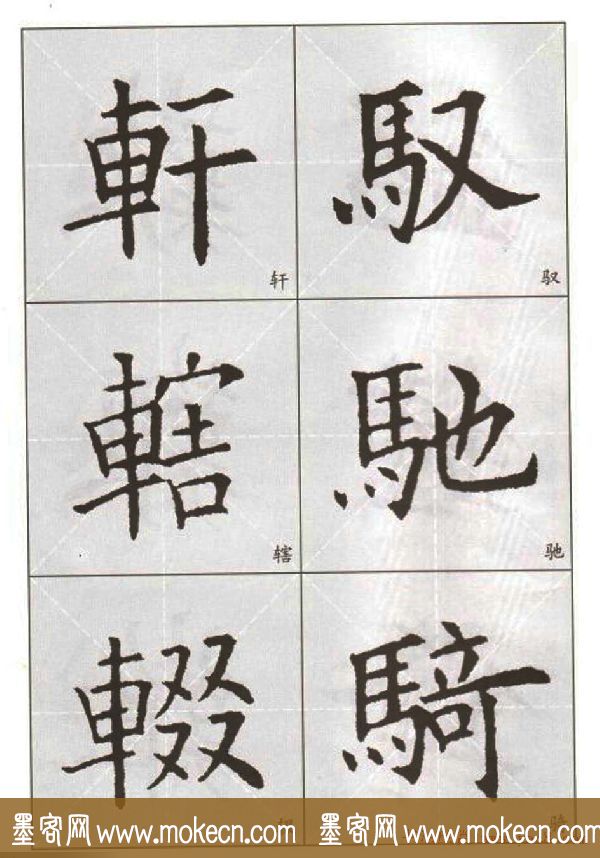 軒 馭
轩 驭
轄 馳
辖 驰
輟 騎
墨客网 www.mokecn.com 墨客网 www.mokecn.com